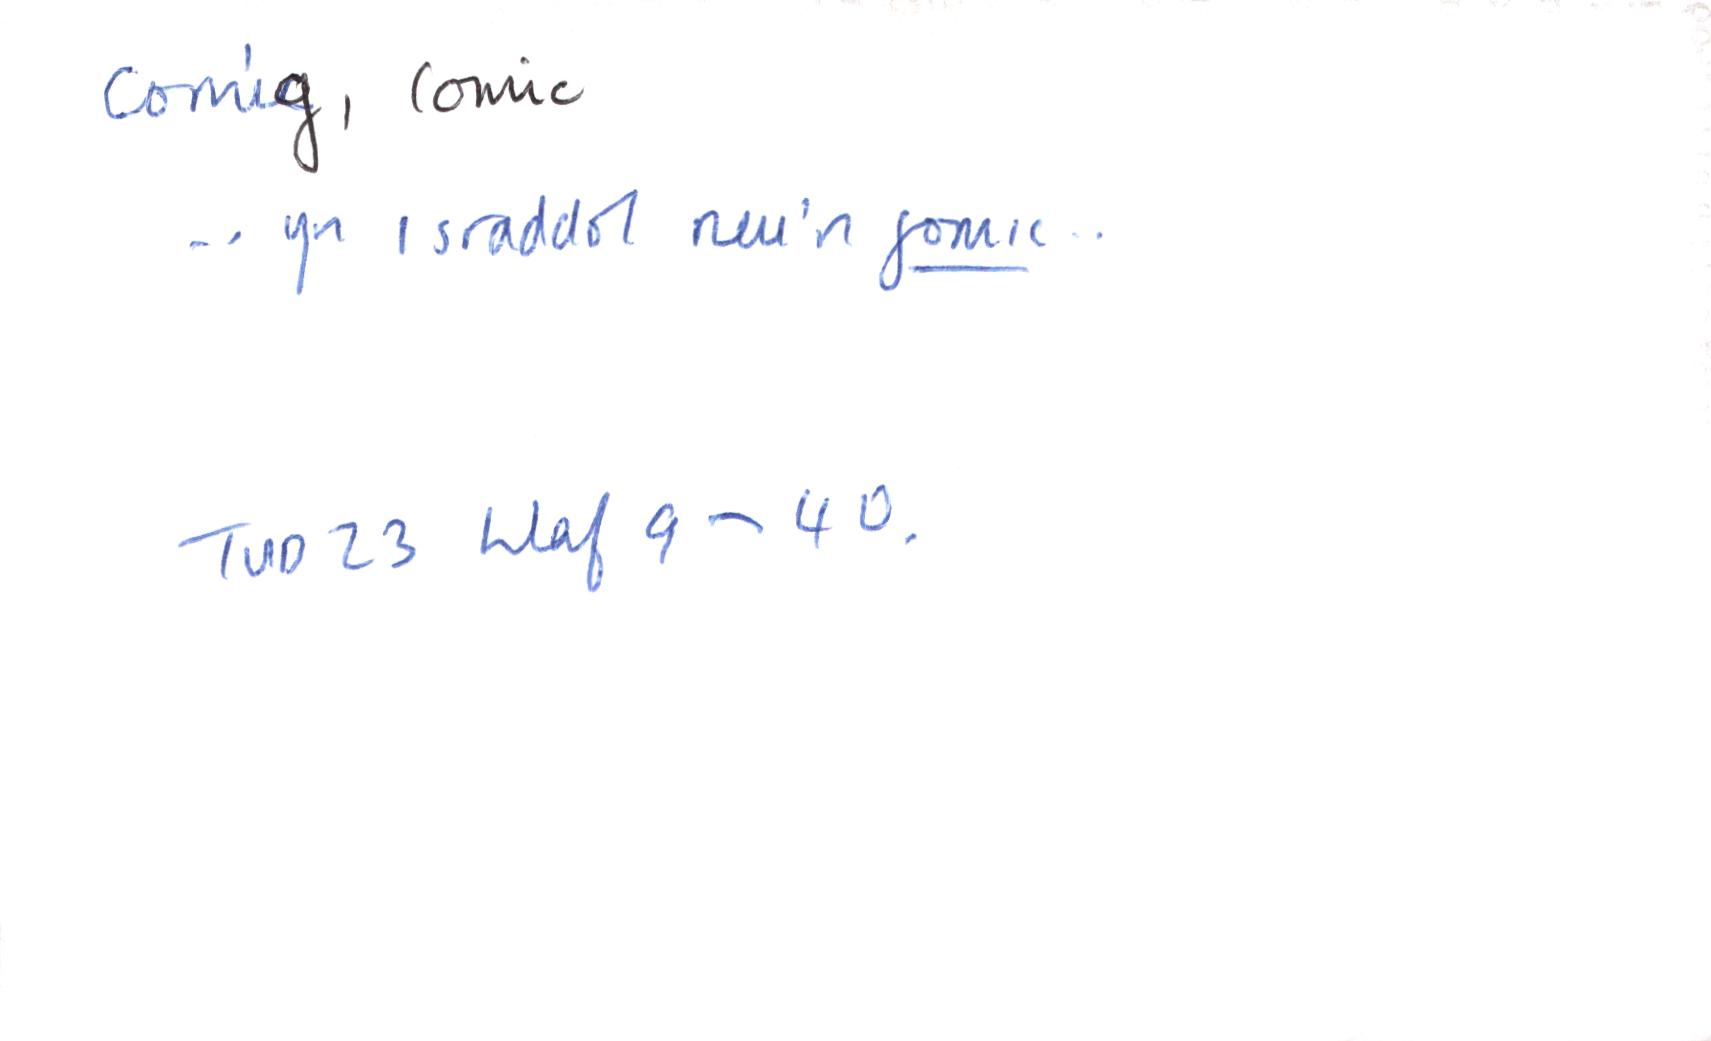 comig, comic
.. yn israddol neu'n gomic ..
TUD 23 Llaf 9 - 40.